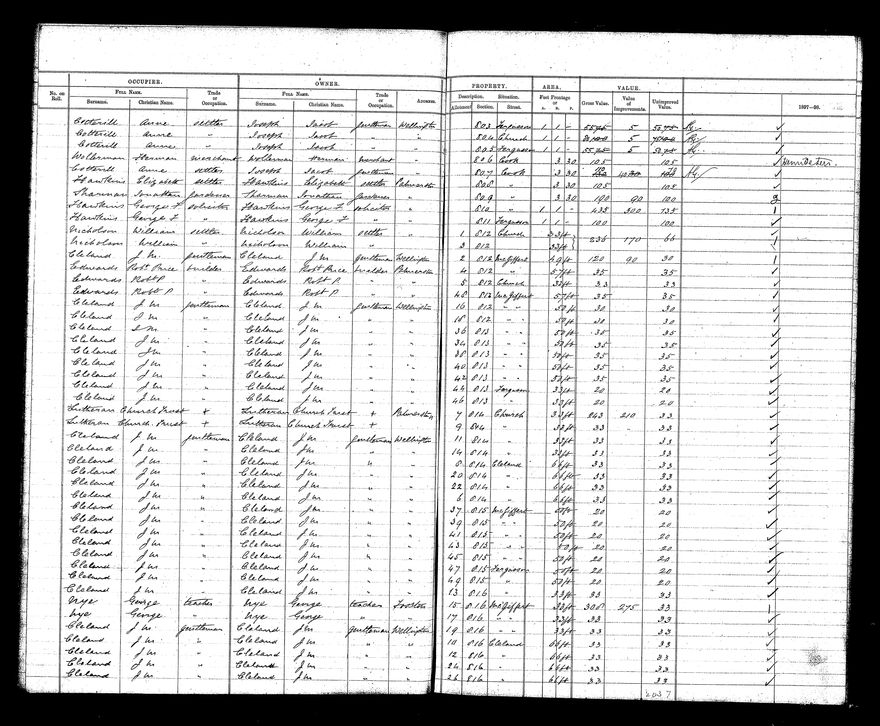 OCCUPIER. OWNER. PROPERTY. AREA. VALUE.
No. on Roll. FULL NAME. Trade or Occupation. FULL NAME. Trade or Occupation. ADDRESS. Description. Situation. Feet Frontage or Gross Value. Value of Improvements. Unimproved Value. 1897-98.
Surname. Christian Name. Surname. Christian Name. Allotment Section. Street. A. R. P.
Cotterill Anne settler Joseph Jacob gentleman Wellington 803 Ferguson 1 1 - 5
Cotterill Anne " Joseph Jacob " " 804 Church 1 1 -
Cotterill Anne " Joseph Jacob " " 805 Ferguson 1 1 - 5
Wollerman Herman merchant Wollerman Herman merchant 806 Cook 3 30 105 105
Cotterill Anne settler Joseph Jacob gentleman 807 Cook 3 30
Hawkins Elizabeth settler Hawkins Elizabeth settler Palmerston 808 " 3 30 105 105
Sharman Jonathan gardener Sharman Jonathan gardener " 809 " 3 30 190 90 100 2
Hawkins George F solicitor Hawkins George F solicitor " 810 " 1 1 - 435 300 735 1
Hawkins George F " Hawkins George F " " 811 Ferguson 1 1 - 100 100
Nicholson William settler Nicholson William settler " 1 812 Church 33ft 236 170 66
Nicholson William " Nicholson William " " 3 812 33ft 1
Cleland J M. gentleman Cleland J M gentleman Wellington 2 812 McGiffert 49ft 120 90 30 1
Edwards Robt Price builder Edwards Robt Price builder Palmerston 4 812 " 57ft 35 35
Edwards Robt P " Edwards Robt P. " " 5 812 Church 33ft 33 33
Edwards Robt P " Edwards Robt P " " 48 812 McGiffert 57ft 35 35
Cleland J M gentleman Cleland J M gentleman Wellington 16 812 " " 50ft 30 30
Cleland J M " Cleland J M " " 18 812 " " 50ft 30 30
Cleland J M " Cleland J M. " " 36 813 " " 50ft 35 35
Cleland J M. " Cleland J M. " " 34 813 " " 50ft 35 35
Cleland J M " Cleland J M. " " 38 813 " " 50ft 35 35
Cleland J M " Cleland J M. " " 40 813 " " 50ft 35 35
Cleland J M. " Cleland J M. " " 42 813 " " 50ft 35 35
Cleland J M. " Cleland J M. " " 44 813 Ferguson 33ft 20 20
Cleland J M. " Cleland J M. " " 46 813 " 33ft 20 20
Lutheran Church Trust + Lutheran Church Trust + Palmerston 7 814 Church 33ft 243 210 33
Lutheran Church Trust + Lutheran Church Trust + 9 814 " 33ft 33 33
Cleland J M gentleman Cleland J M gentleman Wellington 11 814 " 33ft 33 33
Cleland J M. " Cleland J M " " 14 814 " 33ft 33 33
Cleland J M. " Cleland J M. " " 8 814 Cleland 66ft 33 33
Cleland J M " Cleland J M. " " 20 814 " 66ft 33 33
Cleland J M. " Cleland J M. " " 22 814 " 66ft 33 33
Cleland J M " Cleland J M. " " 6 814 " 66ft 33 33
Cleland J M. " Cleland J M. " " 37 815 McGiffert 50ft 20 20
Cleland J M. " Cleland J M. " " 39 815 " " 50ft 20 20
Cleland J M. " Cleland J M. " " 41 815 " " 50ft 20 20
Cleland J M. " Cleland J M. " " 43 815 " " 50ft 20 20
Cleland J M. " Cleland J M. " " 45 815 " 50ft 20 20
Cleland J M. " Cleland J M. " " 47 815 Ferguson 50ft 20 20
Cleland J M. " Cleland J M " " 49 815 " 50ft 20 20
Cleland J M. " Cleland J M. " " 13 816 " 33ft 33 33
Nye George teacher Nye George teacher Foxton 15 816 McGiffert 33ft 308 275 33 1
Nye George " Nye George " " 17 816 " " 33ft 33 33
Cleland J M. gentleman Cleland J M. gentleman Wellington 19 816 " " 33ft 33 33
Cleland J M. " Cleland J M " " 10 816 Cleland 66ft 33 33
Cleland J M " Cleland J M " " 12 816 " 66ft 33 33
Cleland J M " Cleland J M " " 24 816 " 66ft 33 33
Cleland J M " Cleland J M " " 26 816 " 66ft 33 33